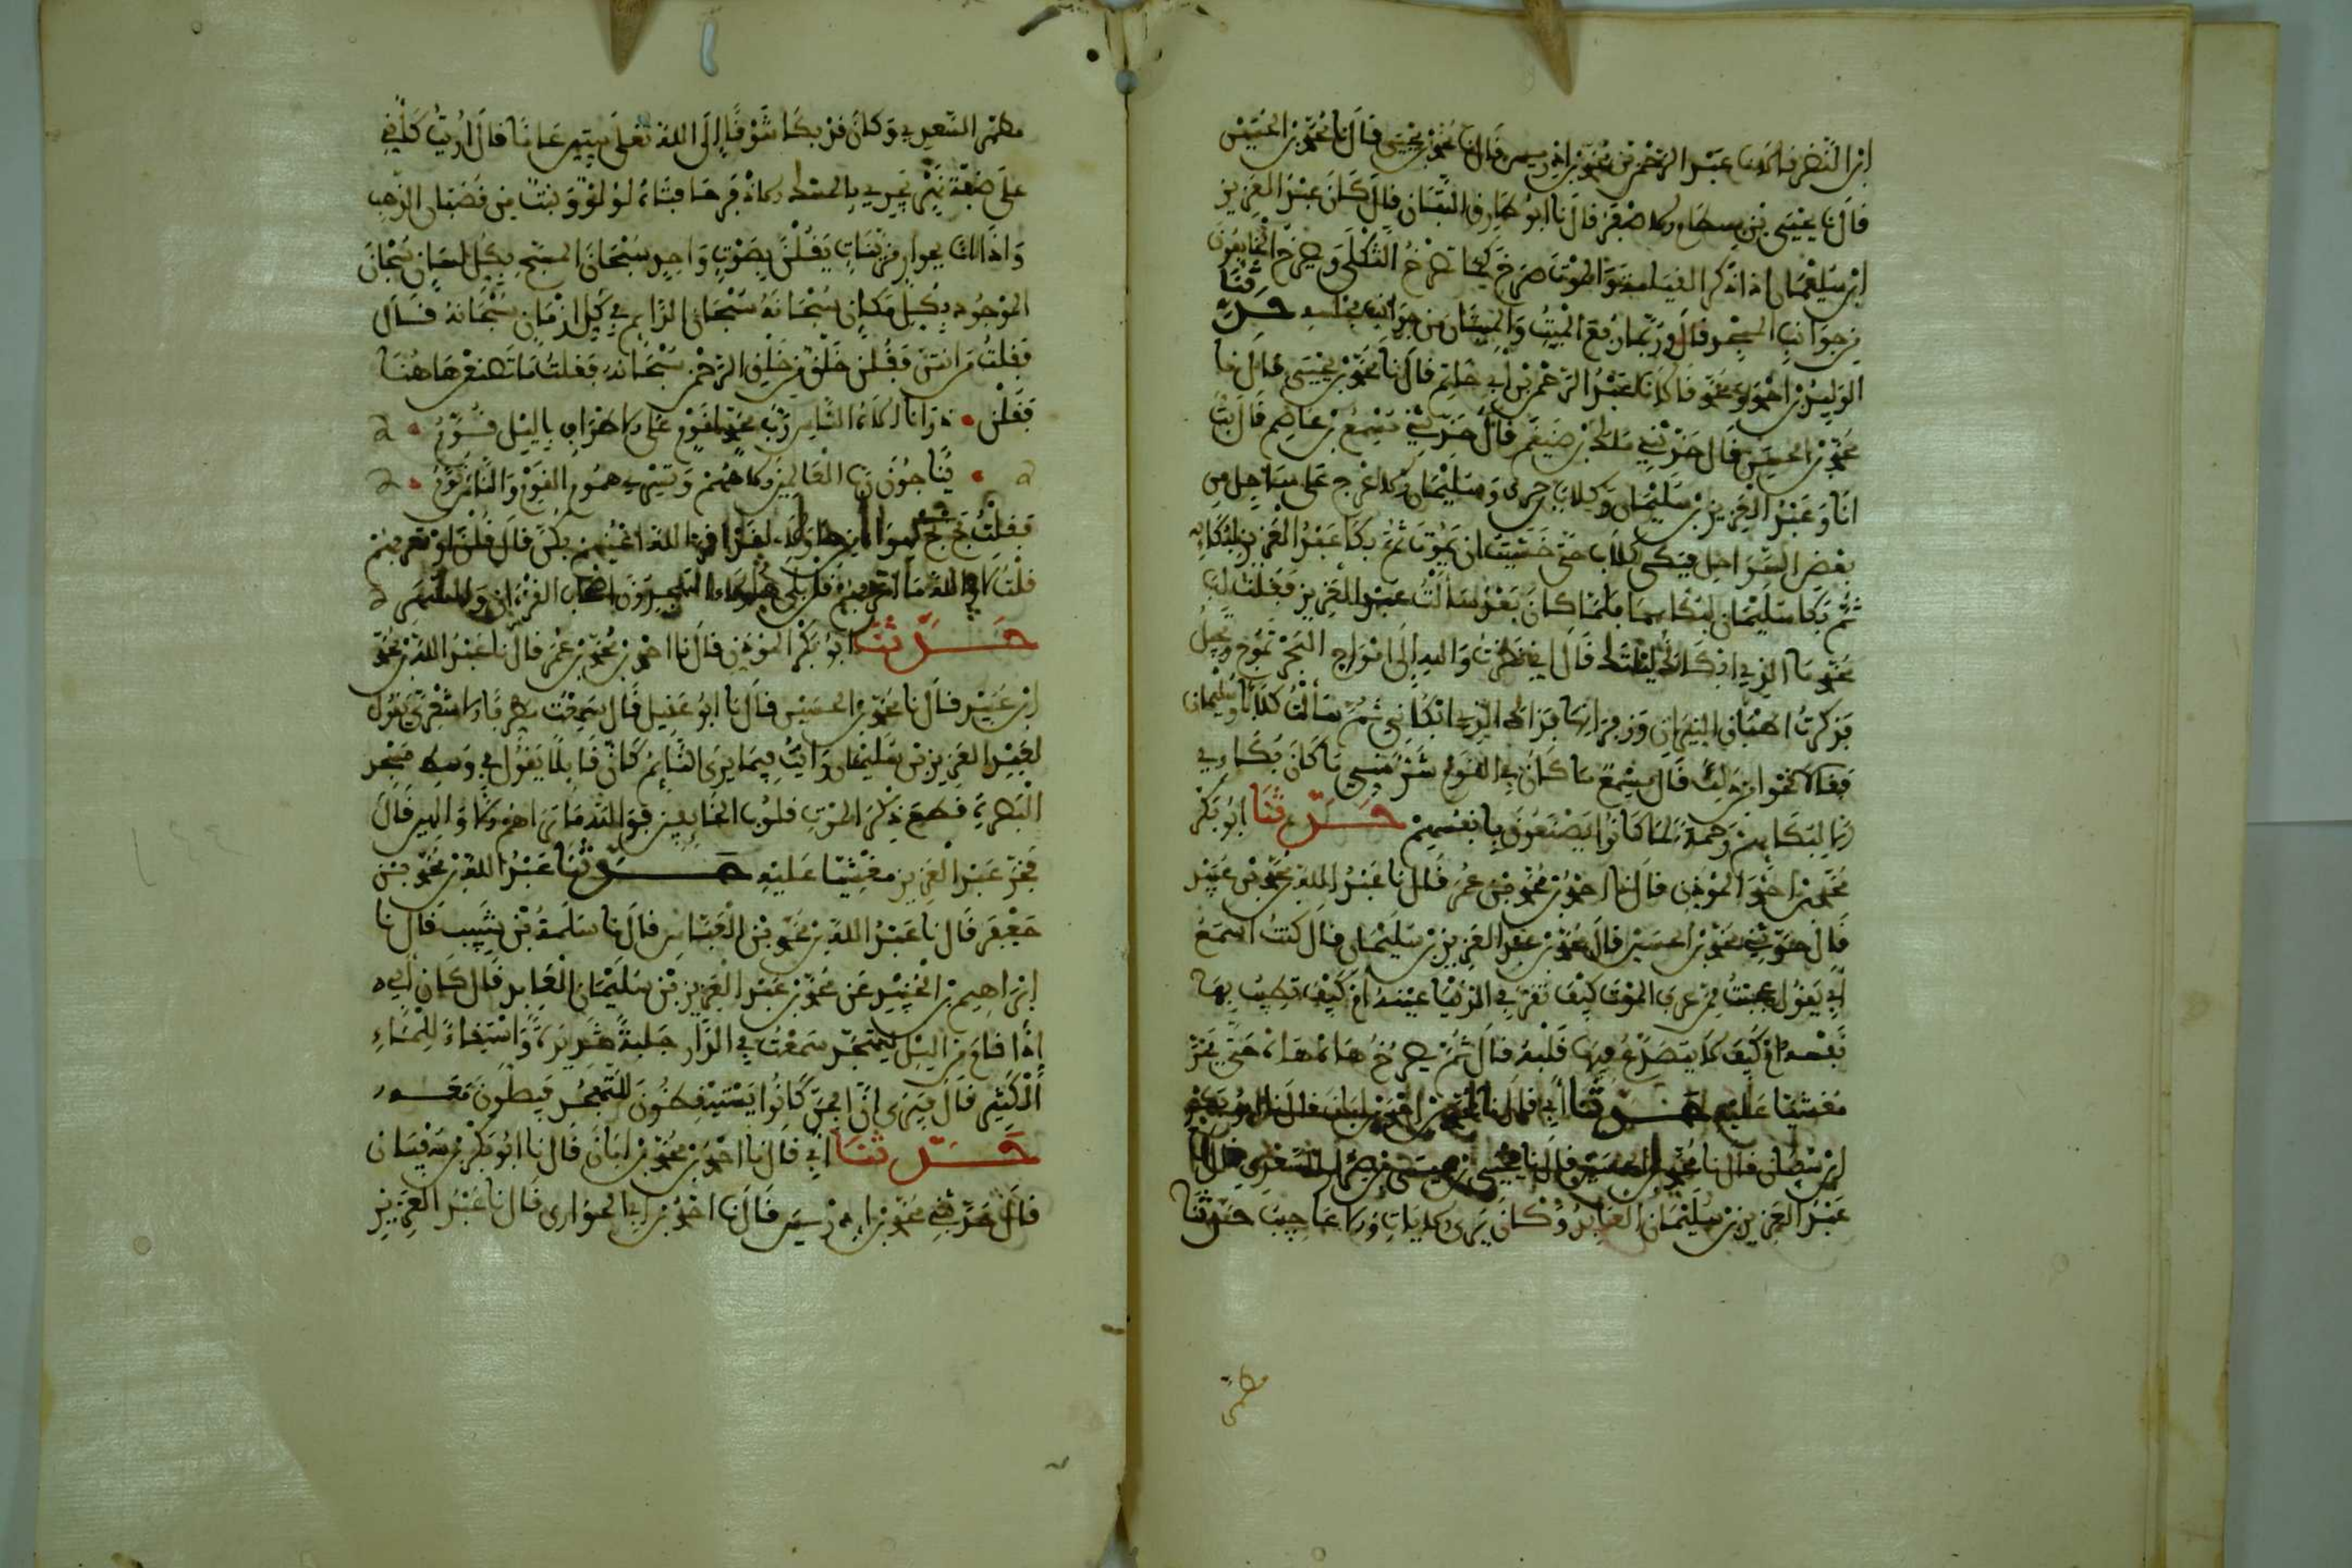 ابن النضر قال نا عبد الرحمن بن محمد بن ادريس قال نا محمد بن يحيى قال نا محمد بن الحسين
قال نا عيسى بن بسطام الاصغر قال نا ابو طارق التبان قال كان عبد العزيز
ابن سليمان اذا ذكر القيامة والموت صرخ كما تصرخ الثكلى ويصرخ الخائفون
من جوانب المسجد قال وربما رفع الميت والميتان من جوانب مجلسه حدثنا
الوليد بن احمد ومحمد قالا نا عبد الرحمن بن ابي حاتم قال نا محمد بن يحيى قال نا
محمد بن الحسين قال حدثني مالك بن ضيغم قال حدثني مسمع بن عاصم قال بت
انا وعبد العزيز بن سليمان وكلاب بن جرى وسليمان الاعرج على ساحل من
بعض السواحل فبكى كلاب حتى خشيت ان يموت ثم بكا عبد العزيز لبكائه
ثم بكا سليمان لبكائهما فلما كان بعد سألت عبد العزيز فقلت له
محمد ما الذي ابكاك ليلتئذ قال اني نظرت والله الى امواج البحر تموج وتجيل
فذكرت اطباق النيران وزفراتها فذاك الذي ابكاني ثم سألت كلابا وسليمان
فقالا نحوا من ذلك قال مسمع ما كان في القوم شر مني ما كان بكاءي
الا لبكائهم رحمة لما كانوا يصنعون بانفسهم حدثنا ابو بكر
محمد بن احمد المؤذن قال نا احمد بن محمد بن عمر قال نا عبد الله بن محمد بن عبيد
قال حدثني محمد بن الحسين قال محمد بن عبد العزيز بن سليمان قال كنت اسمع
ابي يقول عجبت لمن عرف الموت كيف تقر في الدنيا عينه ام كيف تطيب بها
نفسه ام كيف لا يتصدع فيها قلبه قال ثم يصرخ هاه هاه حتى يخر
مغشيا عليه حدثنا ابي قال نا احمد بن محمد بن ابان قال نا ابو بكر
ابن سفيان قال نا محمد بن الحسين قال نا يحيى بن عيسى بن ضرار السعدي قال نا
عبد العزيز بن سليمان العابد وكان يرى الايات والاعاجيب حدثنا
مطهر
مطهر السعدي وكان قد بكا شوقا الى الله تعلى ستين عاما قال اريت كاني
على ضفة نهر يجري بالمسك الاذفر حافتاه لؤلؤ ونبت من قضبان الذهب
واذا انا بجوار مزينات يقلن بصوت واحد سبحان المسبح بكل لسان سبحان
الموجود بكل مكان سبحانه سبحان الدائم في كل الازمان سبحانه قال
فقلت من انتن فقلن خلق من خلق الرحمن سبحانه فقلت ما تصنعن هاهنا
فقلن • ذرانا اله الناس رب محمد لقوم على الاطراف بالليل قوم •
• يناجون رب العالمين الاههم وتسري هموم القوم والناس نوم •
فقلت بخ بخ لهؤلاء من هؤلاء لقد اقر الله اعينهم بكن قال فقلن اوتعرفهم
قلت لا والله ما اعرفهم قلن بلى هؤلاء المتهجدون اصحاب القرءان والسهر
حدثنا ابو بكر المؤذن قال نا احمد بن محمد بن عمر قال نا عبد الله بن محمد
ابن عبيد قال نا محمد بن الحسين قال نا ابو عقيل قال سمعت يقول
لعبد العزيز بن سليمان رايت فيما يرى النائم كان قائلا يقول في وسط مسجد
البصرة قطع ذكر الموت قلوب الخائفين فوالله ما تراهم الا والهين قال
فخر عبد العزيز مغشيا عليه حدثنا عبد الله بن محمد بن
جعفر قال نا عبد الله بن محمد بن العباس قال نا سلمة بن شبيب قال نا
ابراهيم بن الجنيد عن محمد بن عبد العزيز بن سليمان العابد قال كان ابي
اذا قام من الليل ليتهجد سمعت في الدار جلبة شديدة واستقاء للماء
الكثير قال فيرى ان الجن كانوا يستيقظون للتهجد فيصلون معه
حدثنا ابي قال نا احمد بن محمد بن ابان قال نا ابو بكر بن سفيان
قال حدثني محمد بن ادريس قال نا احمد بن ابي الحوارى قال نا عبد العزيز